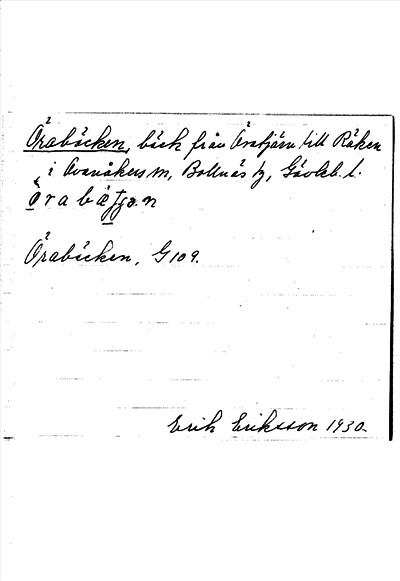 Öraböcken, bäck från Öratjärn till Räken
i Ovanåkers sn, Bollnäs tg, Gävleb. l.
Öraböcken, G 109.
Erik Eriksson 1930